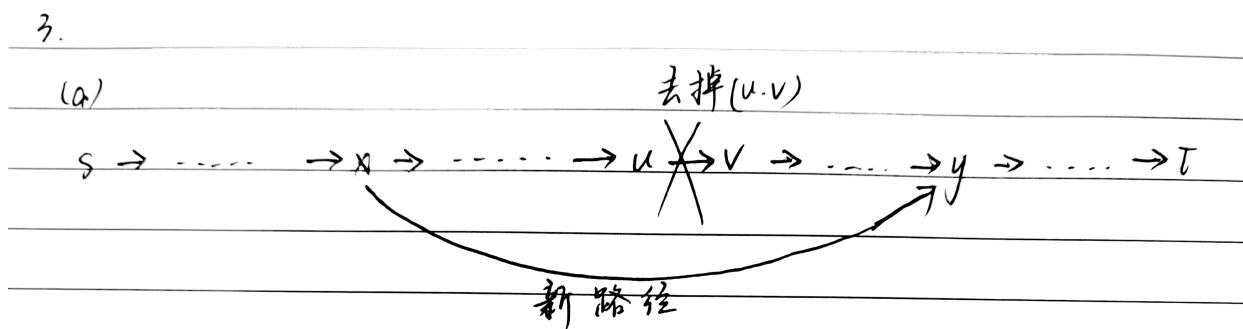 3.
(a)
去掉(u.v)
s → ...... → x → ....... → u → v → ..... → y → ..... → T
新路径